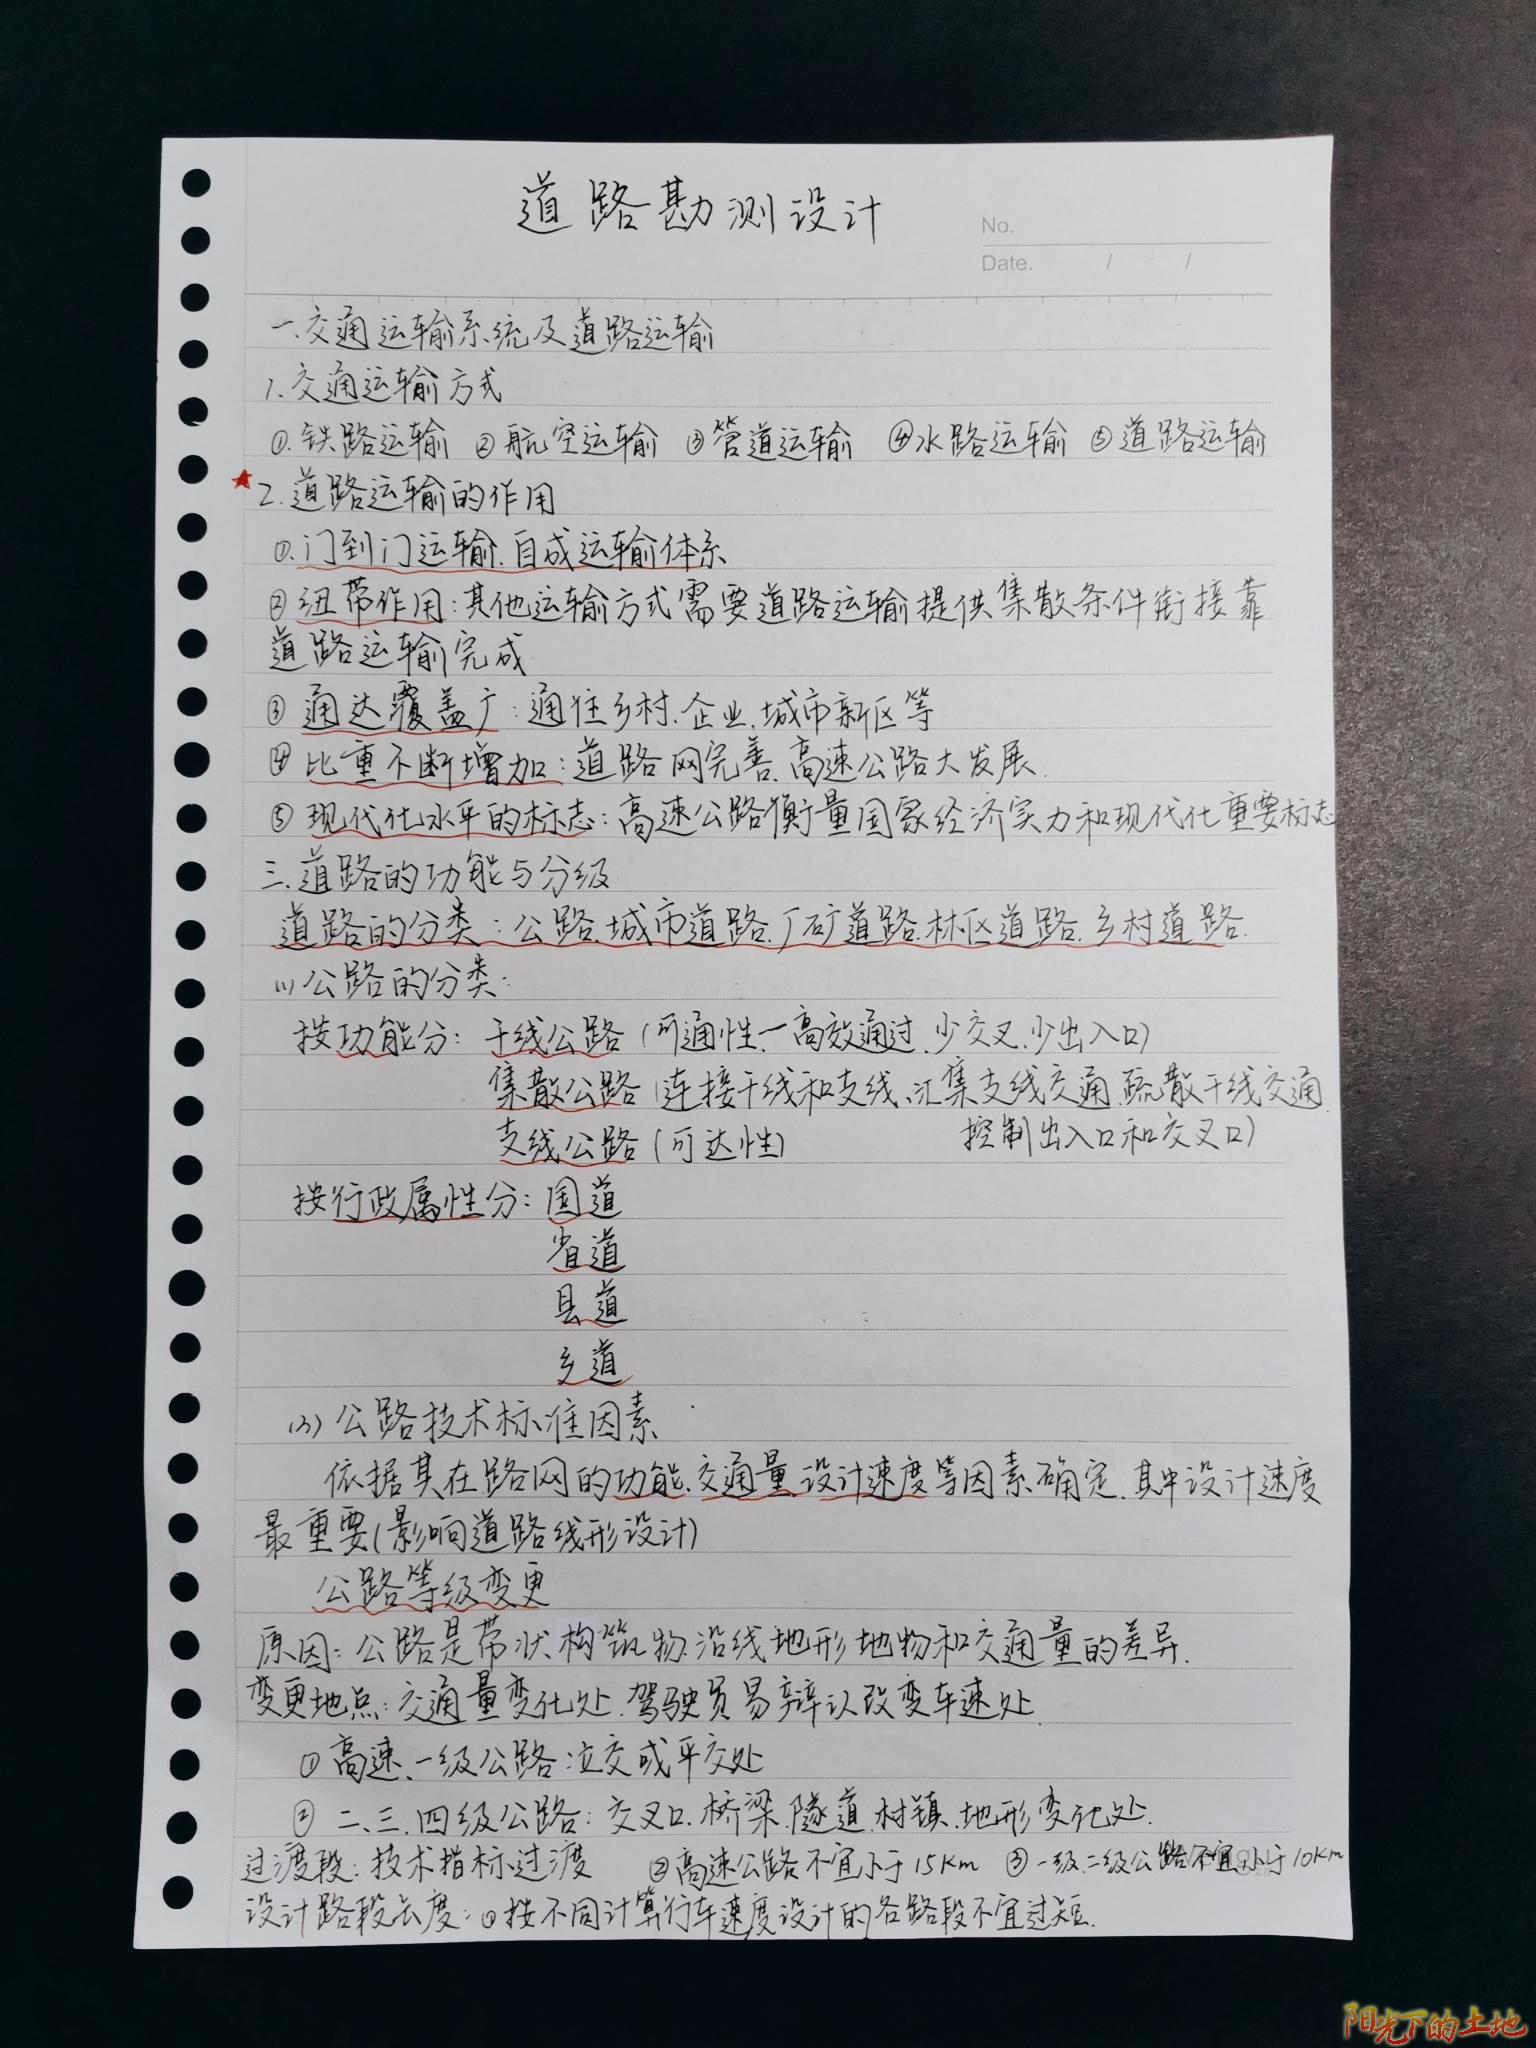 道路勘测设计
No.
Date. / /
一.交通运输系统及道路运输
1.交通运输方式
①.铁路运输 ②航空运输 ③管道运输 ④水路运输 ⑤道路运输
★2.道路运输的作用
①.门到门运输.自成运输体系
②纽带作用:其他运输方式需要道路运输提供集散条件衔接靠
道路运输完成
③通达覆盖广:通往乡村.企业.城市新区等
④比重不断增加:道路网完善.高速公路大发展.
⑤现代化水平的标志:高速公路衡量国家经济实力和现代化重要标志
三.道路的功能与分级
道路的分类:公路.城市道路.厂矿道路.林区道路.乡村道路.
(1)公路的分类:
按功能分:干线公路(可通性—高效通过.少交叉.少出入口)
集散公路(连接干线和支线、汇集支线交通.疏散干线交通.
支线公路(可达性) 控制出入口和交叉口)
按行政属性分:国道
省道
县道
乡道
(2)公路技术标准因素
依据其在路网的功能.交通量.设计速度等因素确定.其中设计速度
最重要(影响道路线形设计)
公路等级变更
原因:公路是带状构筑物.沿线地形地物和交通量的差异.
变更地点:交通量变化处.驾驶员易辩认改变车速处.
①高速、一级公路:立交或平交处
②二、三.四级公路:交叉口.桥梁.隧道.村镇.地形变化处.
过渡段:技术指标过渡 ②高速公路不宜小于15Km ③一级二级公路不宜小于10Km
设计路段长度:①按不同计算行车速度设计的各路段不宜过短.
阳光下的土地